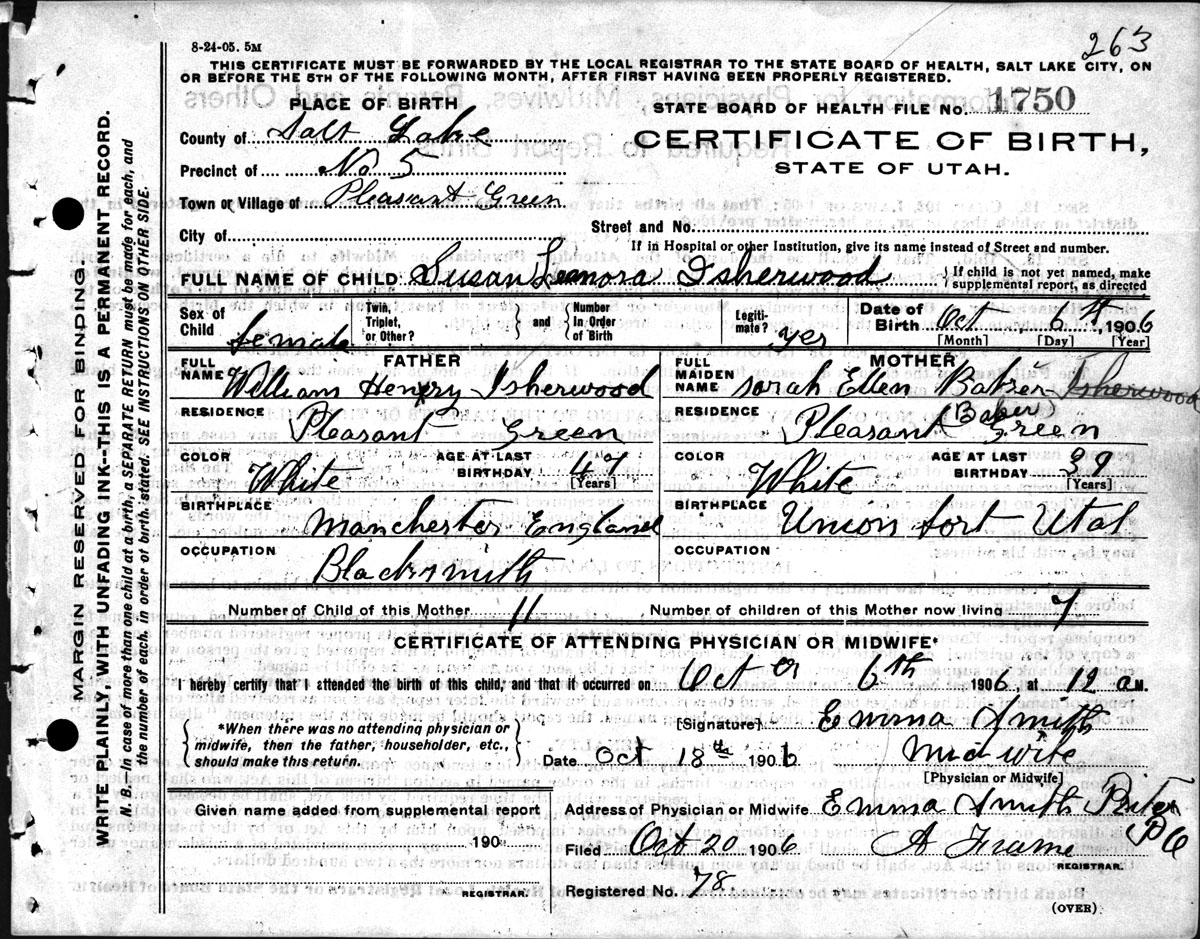 263
8-24-05. 5M
THIS CERTIFICATE MUST BE FORWARDED BY THE LOCAL REGISTRAR TO THE STATE BOARD OF HEALTH, SALT LAKE CITY, ON
OR BEFORE THE 5TH OF THE FOLLOWING MONTH, AFTER FIRST HAVING BEEN PROPERLY REGISTERED.
PLACE OF BIRTH
STATE BOARD OF HEALTH FILE No. 1750
County of Salt Lake
CERTIFICATE OF BIRTH,
Precinct of No 5
STATE OF UTAH.
Town or Village of Pleasant Green
City of
Street and No.
If in Hospital or other Institution, give its name instead of Street and number.
FULL NAME OF CHILD Susan Leonora Isherwood
{ If child is not yet named, make
supplemental report, as directed
Sex of Child female
Twin, Triplet, or Other? } and { Number In Order of Birth
Legiti-mate? yes
Date of Birth Oct 6th, 1906
[Month] [Day] [Year]
FATHER
MOTHER
FULL NAME William Henry Isherwood
FULL MAIDEN NAME Sarah Ellen Baker Isherwood
RESIDENCE
Pleasant Green
RESIDENCE
(Baker)
Pleasant Green
COLOR White
AGE AT LAST BIRTHDAY 47
[Years]
COLOR White
AGE AT LAST BIRTHDAY 39
[Years]
BIRTHPLACE
Manchester England
BIRTHPLACE
Union fort Utah
OCCUPATION
Blacksmith
OCCUPATION
Number of Child of this Mother 11
Number of children of this Mother now living 7
CERTIFICATE OF ATTENDING PHYSICIAN OR MIDWIFE*
I hereby certify that I attended the birth of this child, and that it occurred on Oct 6th 1906, at 12 a M.
{ *When there was no attending physician or
midwife, then the father, householder, etc.,
should make this return. }
[Signature] Emma Smith
Date Oct 18th 1906
Midwife
[Physician or Midwife]
Given name added from supplemental report
190
REGISTRAR.
Address of Physician or Midwife Emma Smith
Filed Oct 20 1906
A Frame
REGISTRAR.
Registered No. 78
(OVER)
MARGIN RESERVED FOR BINDING
WRITE PLAINLY, WITH UNFADING INK--THIS IS A PERMANENT RECORD.
N. B.—In case of more than one child at a birth, a SEPARATE RETURN must be made for each, and
the number of each, in order of birth, stated. SEE INSTRUCTIONS ON OTHER SIDE.